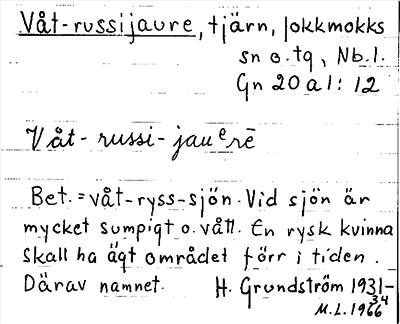 Våt-russijaure, tjärn, Jokkmokks
sn o. tg, Nb. l.
Gn 20 a 1: 12
Våt-russi-jauᵉrē
Bet. = våt-ryss-sjön. Vid sjön är
mycket sumpigt o. vått. En rysk kvinna
skall ha ägt området förr i tiden.
Därav namnet. H. Grundström 1931-
34
M.L. 1966